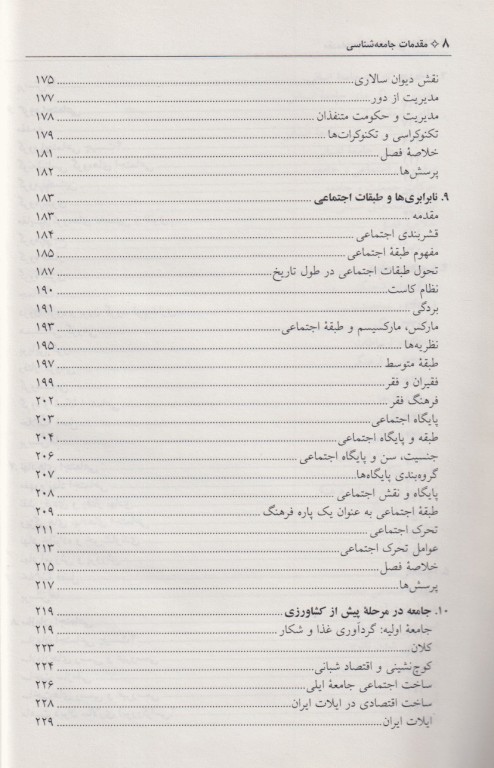 ۸ ❖ مقدمات جامعه‌شناسی
نقش دیوان سالاری ۱۷۵
مدیریت از دور ۱۷۷
مدیریت و حکومت متنفذان ۱۷۸
تکنوکراسی و تکنوکرات‌ها ۱۷۹
خلاصهٔ فصل ۱۸۱
پرسش‌ها ۱۸۲
۹. نابرابری‌ها و طبقات اجتماعی ۱۸۳
مقدمه ۱۸۳
قشربندی اجتماعی ۱۸۴
مفهوم طبقهٔ اجتماعی ۱۸۵
تحول طبقات اجتماعی در طول تاریخ ۱۸۷
نظام کاست ۱۹۰
بردگی ۱۹۱
مارکس، مارکسیسم و طبقهٔ اجتماعی ۱۹۳
نظریه‌ها ۱۹۵
طبقهٔ متوسط ۱۹۷
فقیران و فقر ۱۹۹
فرهنگ فقر ۲۰۲
پایگاه اجتماعی ۲۰۳
طبقه و پایگاه اجتماعی ۲۰۴
جنسیت، سن و پایگاه اجتماعی ۲۰۶
گروه‌بندی پایگاه‌ها ۲۰۷
پایگاه و نقش اجتماعی ۲۰۸
طبقهٔ اجتماعی به عنوان یک پاره فرهنگ ۲۰۹
تحرک اجتماعی ۲۱۱
عوامل تحرک اجتماعی ۲۱۳
خلاصهٔ فصل ۲۱۵
پرسش‌ها ۲۱۷
۱۰. جامعه در مرحلهٔ پیش از کشاورزی ۲۱۹
جامعهٔ اولیه: گردآوری غذا و شکار ۲۱۹
کلان ۲۲۳
کوچ‌نشینی و اقتصاد شبانی ۲۲۴
ساخت اجتماعی جامعهٔ ایلی ۲۲۶
ساخت اقتصادی در ایلات ایران ۲۲۸
ایلات ایران ۲۲۹